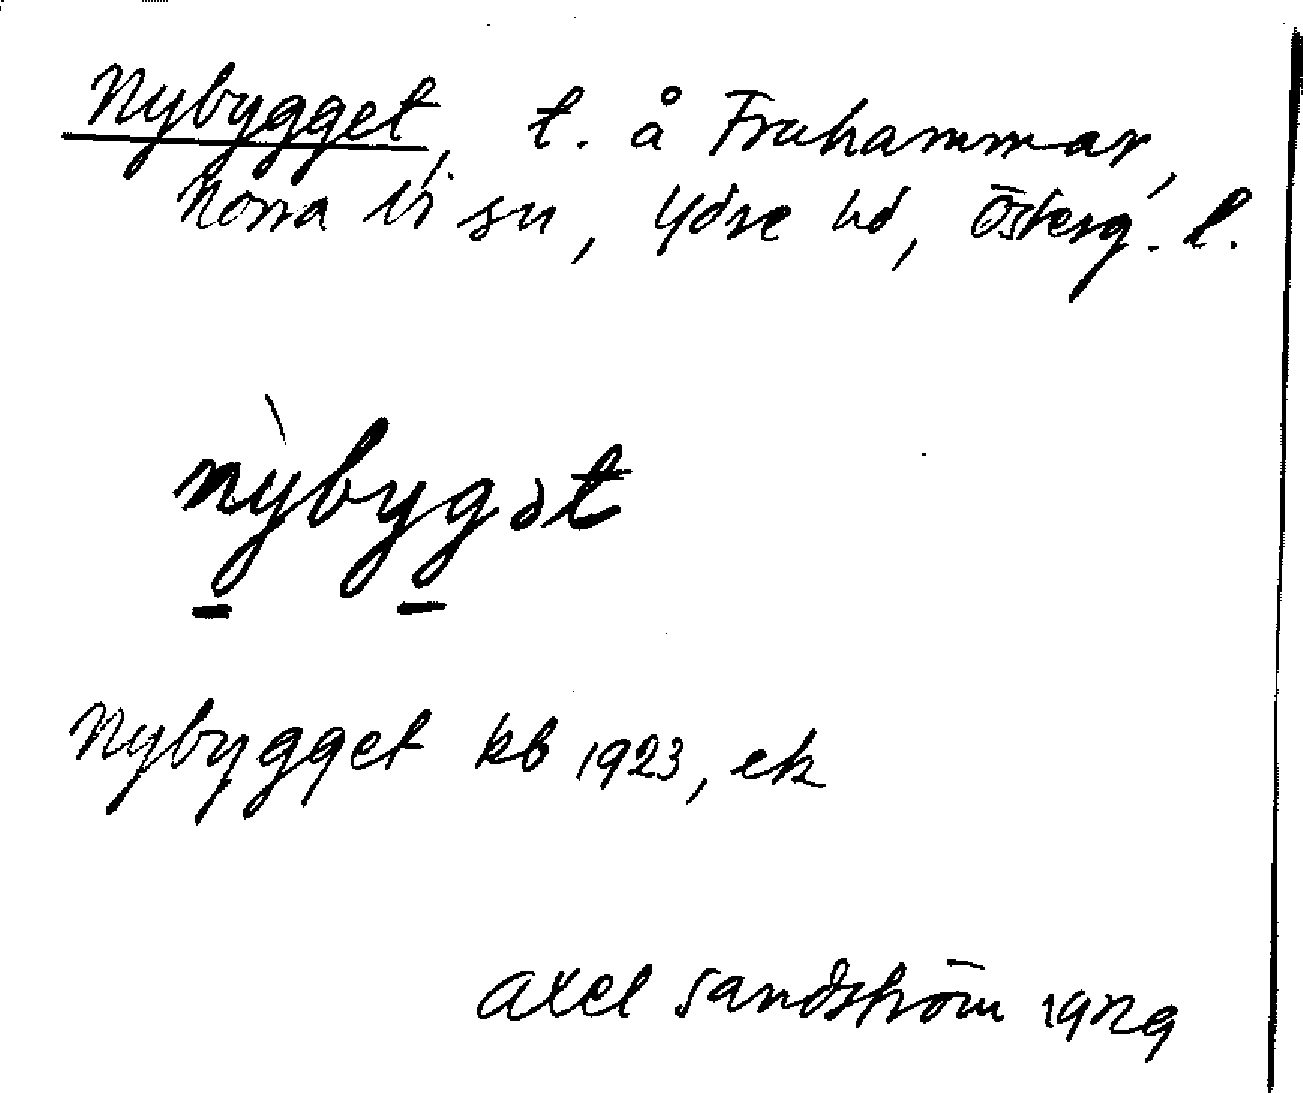 Nybygget, t. å Fruhammar,
Norra Vi sn, Ydre hd, Österg. l.
nybygət
Nybygget kb 1923, ek
Axel Sandström 1929